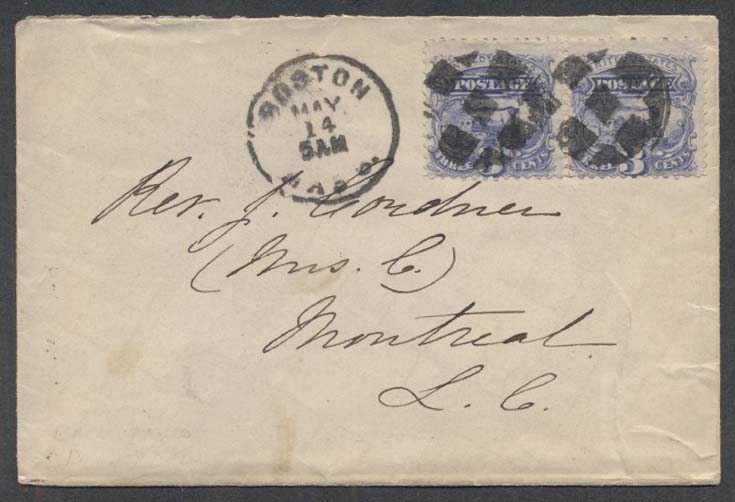 BOSTON
MAY
14
5AM
MASS
UNITED STATES
POSTAGE
THREE 3 CENTS
UNITED STATES
POSTAGE
3 CENTS
Rev. J. Cordner
(Mrs. C.)
Montreal
L. C.